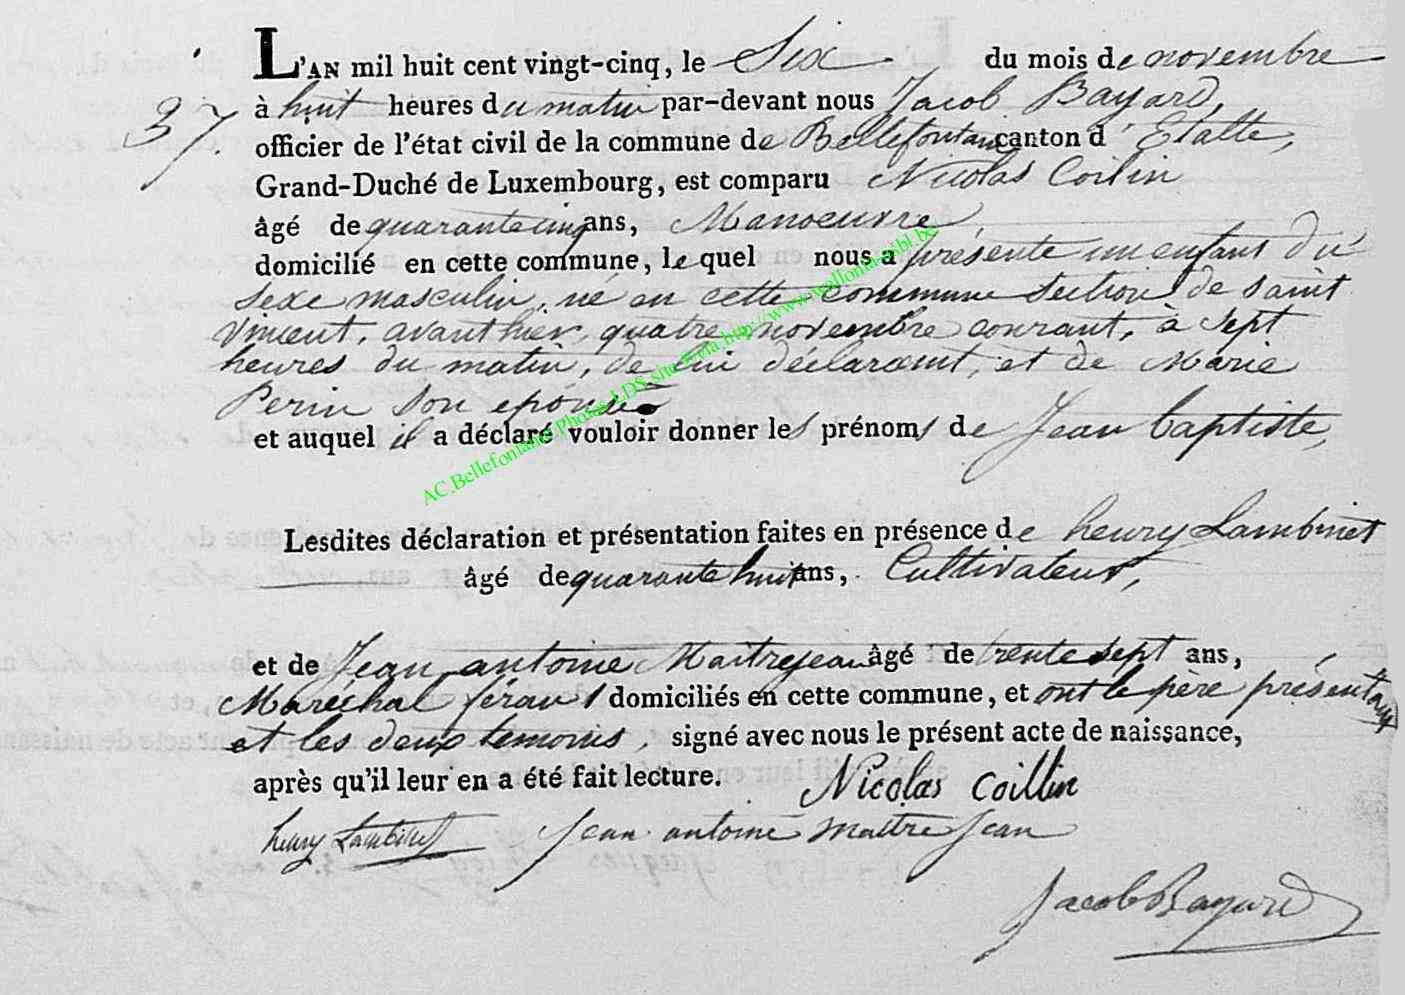 L'AN mil huit cent vingt-cinq, le Six du mois de novembre
37. à huit heures du matin par-devant nous Jacob Bayard,
officier de l'état civil de la commune de Bellefontaine canton d'Etalle,
Grand-Duché de Luxembourg, est comparu Nicolas Coilin
âgé de quarante cinq ans, Manoeuvre,
domicilié en cette commune, lequel nous a présenté un enfant du
sexe masculin, né en cette commune section de saint
vincent, avanthier, quatre novembre courant, à sept
heures du matin, de lui déclarant, et de Marie
Perin son epouse
et auquel il a déclaré vouloir donner les prénoms de Jean baptiste,
Lesdites déclaration et présentation faites en présence de henry Lambinet
âgé de quarante huit ans, Cultivateur,
et de Jean antoine Maitrejean âgé de trente sept ans,
Maréchal férant domiciliés en cette commune, et ont le père présentant
et les deux temoins, signé avec nous le présent acte de naissance,
après qu'il leur en a été fait lecture. Nicolas Coillin
henry Lambinet Jean antoine maitre Jean
Jacob Bayard
AC.Bellefontaine,Photos LDS,site Luxroots,http://www.wallonia-aibl.be